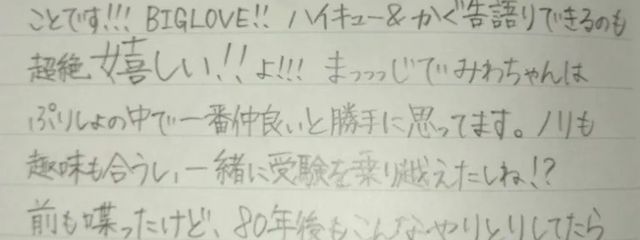 ことです!!! BIGLOVE!! ハイキュー&かぐ告語りできるのも
超絶嬉しい!!よ!!! まっっっじでみわちゃんは
ぷりしょの中で一番仲良いと勝手に思ってます。ノリも
趣味も合うし、一緒に受験を乗り越えたしね!?
前も喋ったけど、80年後もこんなやりとりしてたら